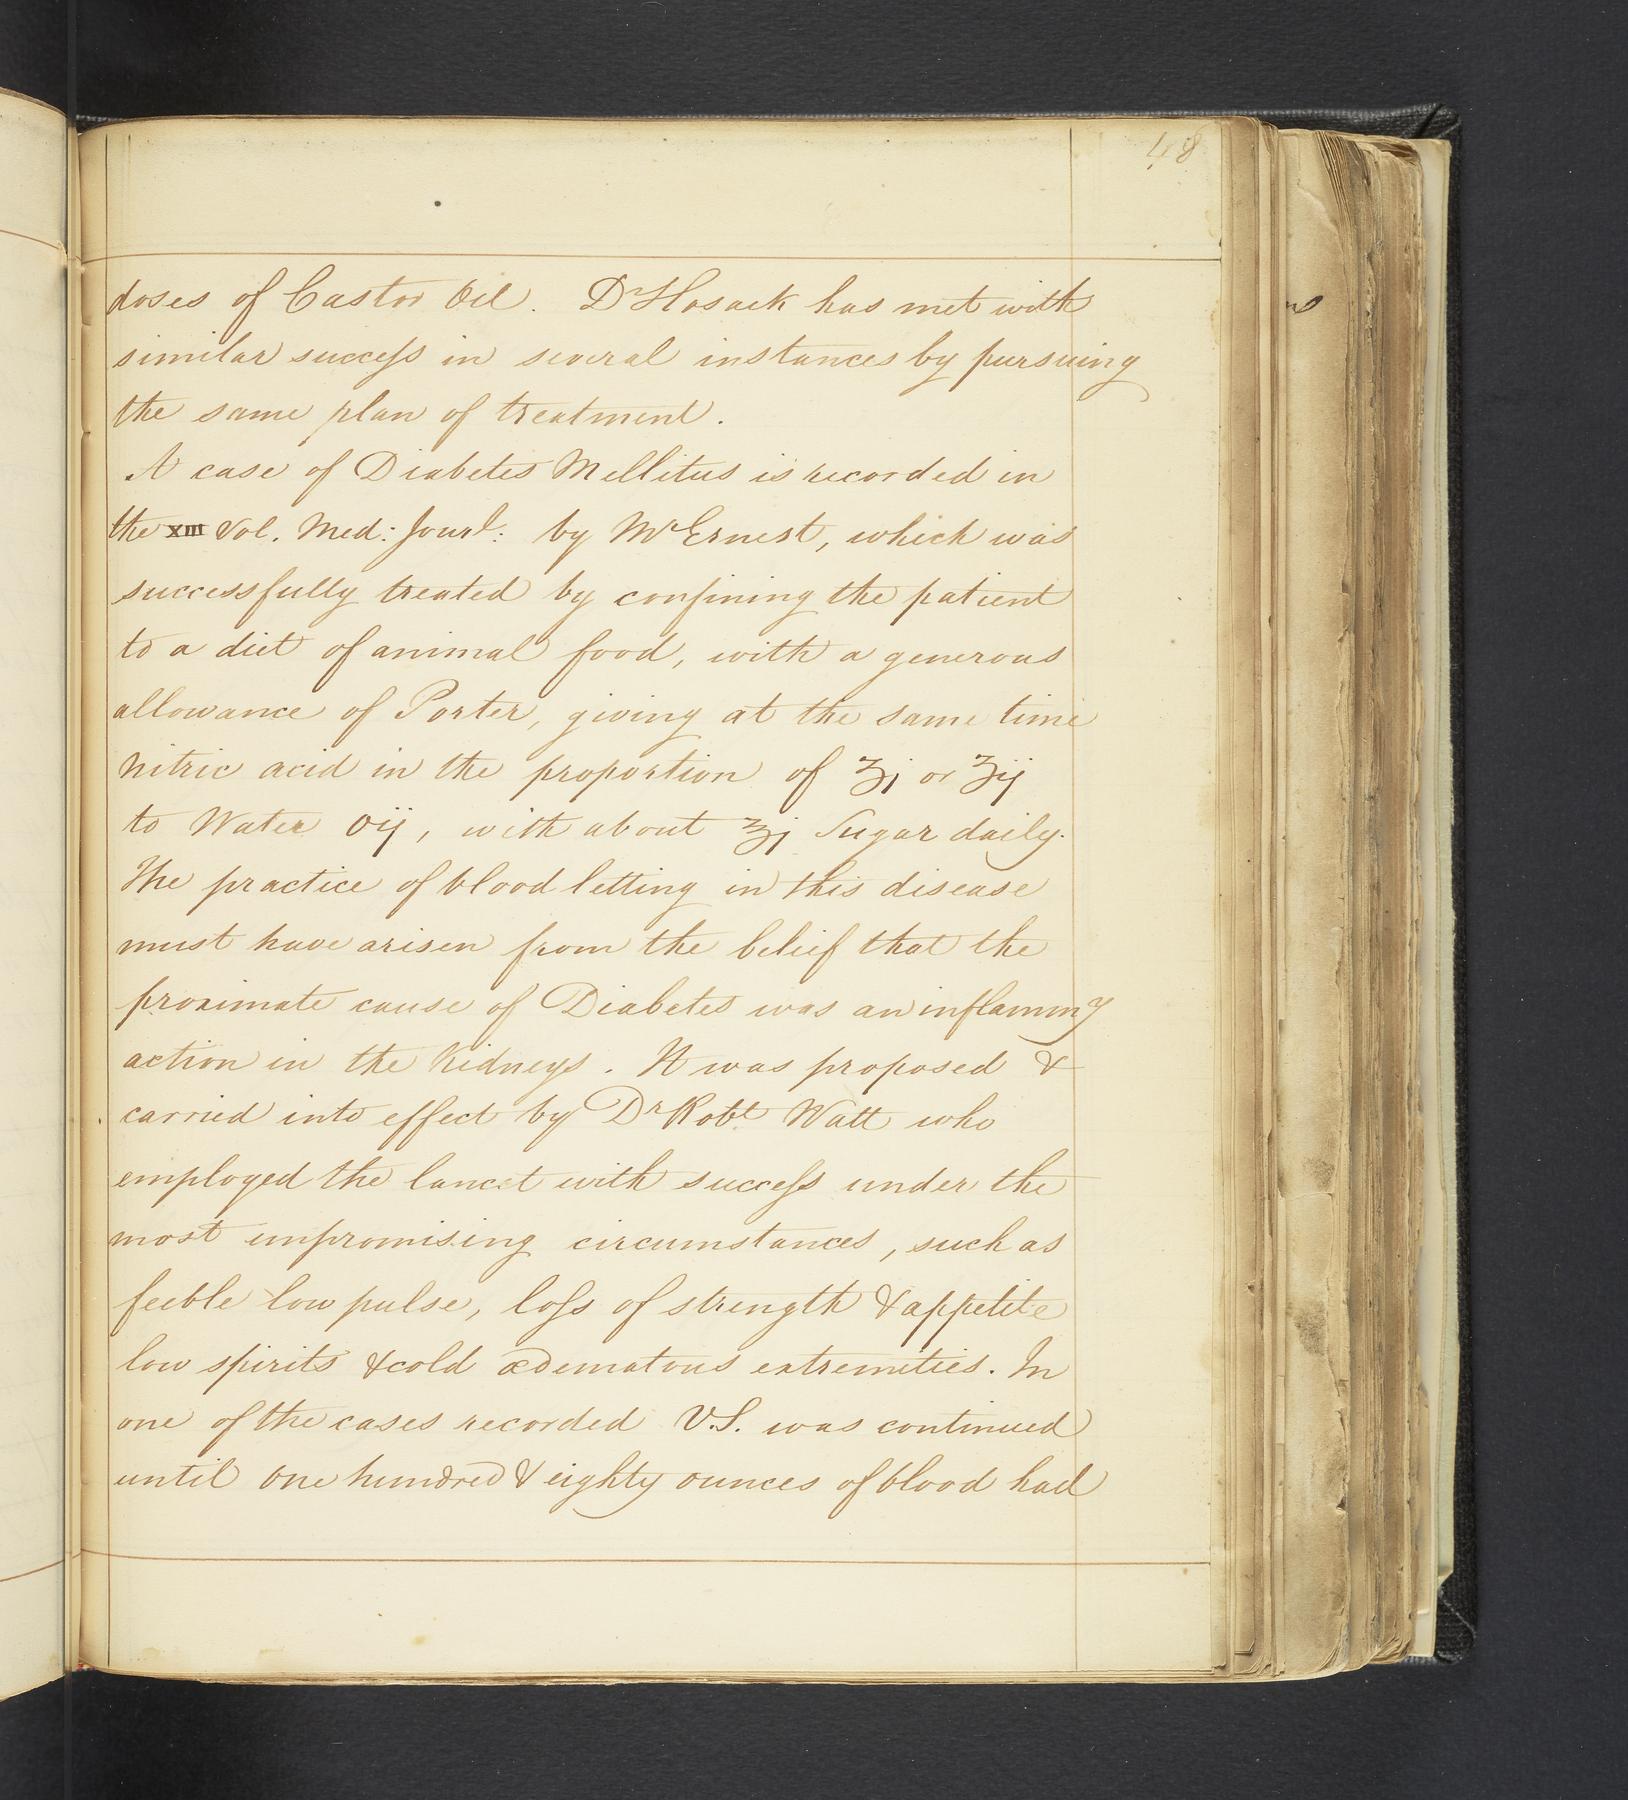 48
doses of Castor Oil. Dr Hosack has met with
similar succeſs in several instances by pursuing
the same plan of treatment.
A case of Diabetes Mellitus is recorded in
the XIII Vol. Med: Jourl: by Mr Ernest, which was
successfully treated by confining the patient
to a diet of animal food, with a generous
allowance of Porter, giving at the same time
nitric acid in the proportion of ʒj or ʒij
to Water Oij, with about ℥j Sugar daily.
The practice of blood letting in this disease
must have arisen from the belief that the
proximate cause of Diabetes was an inflammy
action in the Kidneys. It was proposed &
carried into effect by Dr Robt Watt who
employed the lancet with succeſs under the
most unpromising circumstances, such as
feeble low pulse, loſs of strength & appetite
low spirits & cold œdematous extremities. In
one of the cases recorded V.S. was continued
until one hundred & eighty ounces of blood had